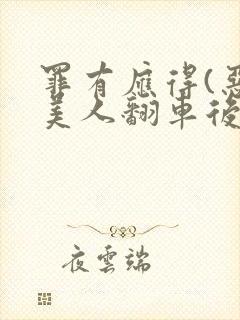 罪有應得(惡
美人翻車後
夜雲端